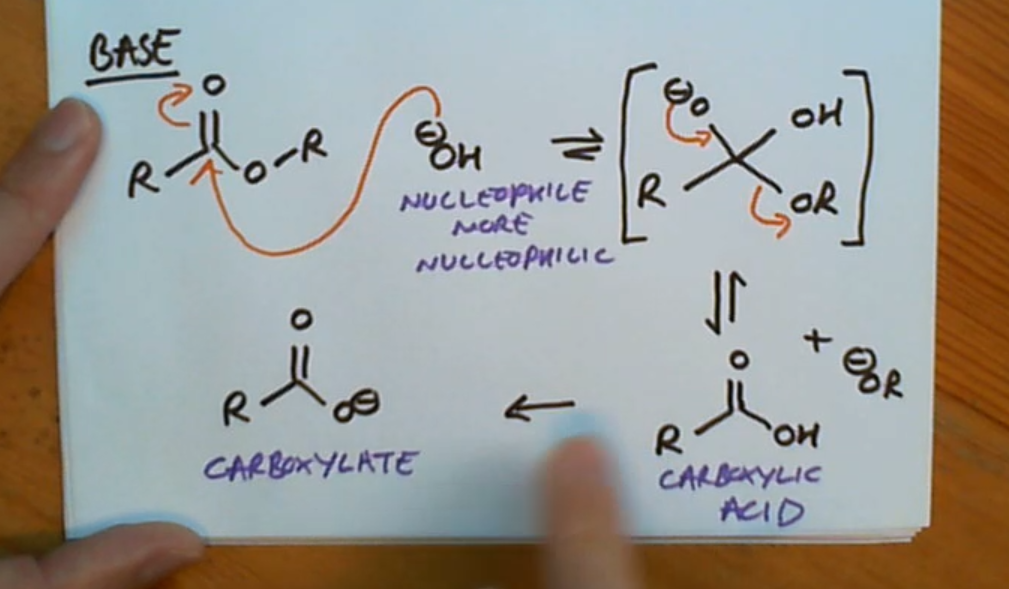 BASE
O
R O R
⊖OH
NUCLEOPHILE
MORE
NUCLEOPHILIC
⊖O OH
R OR
O
R O⊖
CARBOXYLATE
+ ⊖OR
O
R OH
CARBOXYLIC
ACID